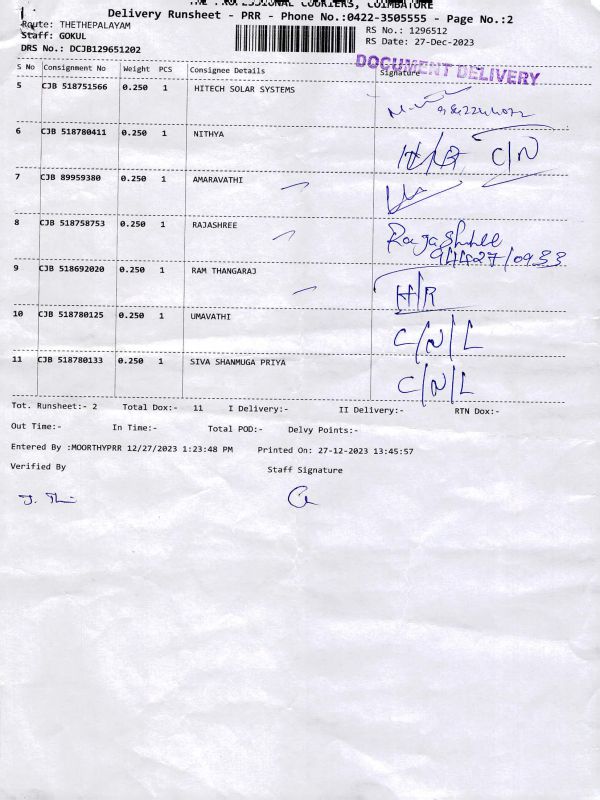 THE PROFESSIONAL COURIERS, COIMBATORE
Delivery Runsheet - PRR - Phone No.:0422-3505555 - Page No.:2
Route: THETHEPALAYAM
RS No.: 1296512
Staff: GOKUL
RS Date: 27-Dec-2023
DRS No.: DCJB129651202
DOCUMENT DELIVERY
S No Consignment No Weight PCS Consignee Details Signature
5 CJB 518751566 0.250 1 HITECH SOLAR SYSTEMS
6 CJB 518780411 0.250 1 NITHYA C/N
7 CJB 89959380 0.250 1 AMARAVATHI
8 CJB 518758753 0.250 1 RAJASHREE Rajashree
9 CJB 518692020 0.250 1 RAM THANGARAJ H/R
10 CJB 518780125 0.250 1 UMAVATHI C/N/L
11 CJB 518780133 0.250 1 SIVA SHANMUGA PRIYA C/N/L
Tot. Runsheet:- 2 Total Dox:- 11 I Delivery:- II Delivery:- RTN Dox:-
Out Time:- In Time:- Total POD:- Delvy Points:-
Entered By :MOORTHYPRR 12/27/2023 1:23:48 PM Printed On: 27-12-2023 13:45:57
Verified By Staff Signature